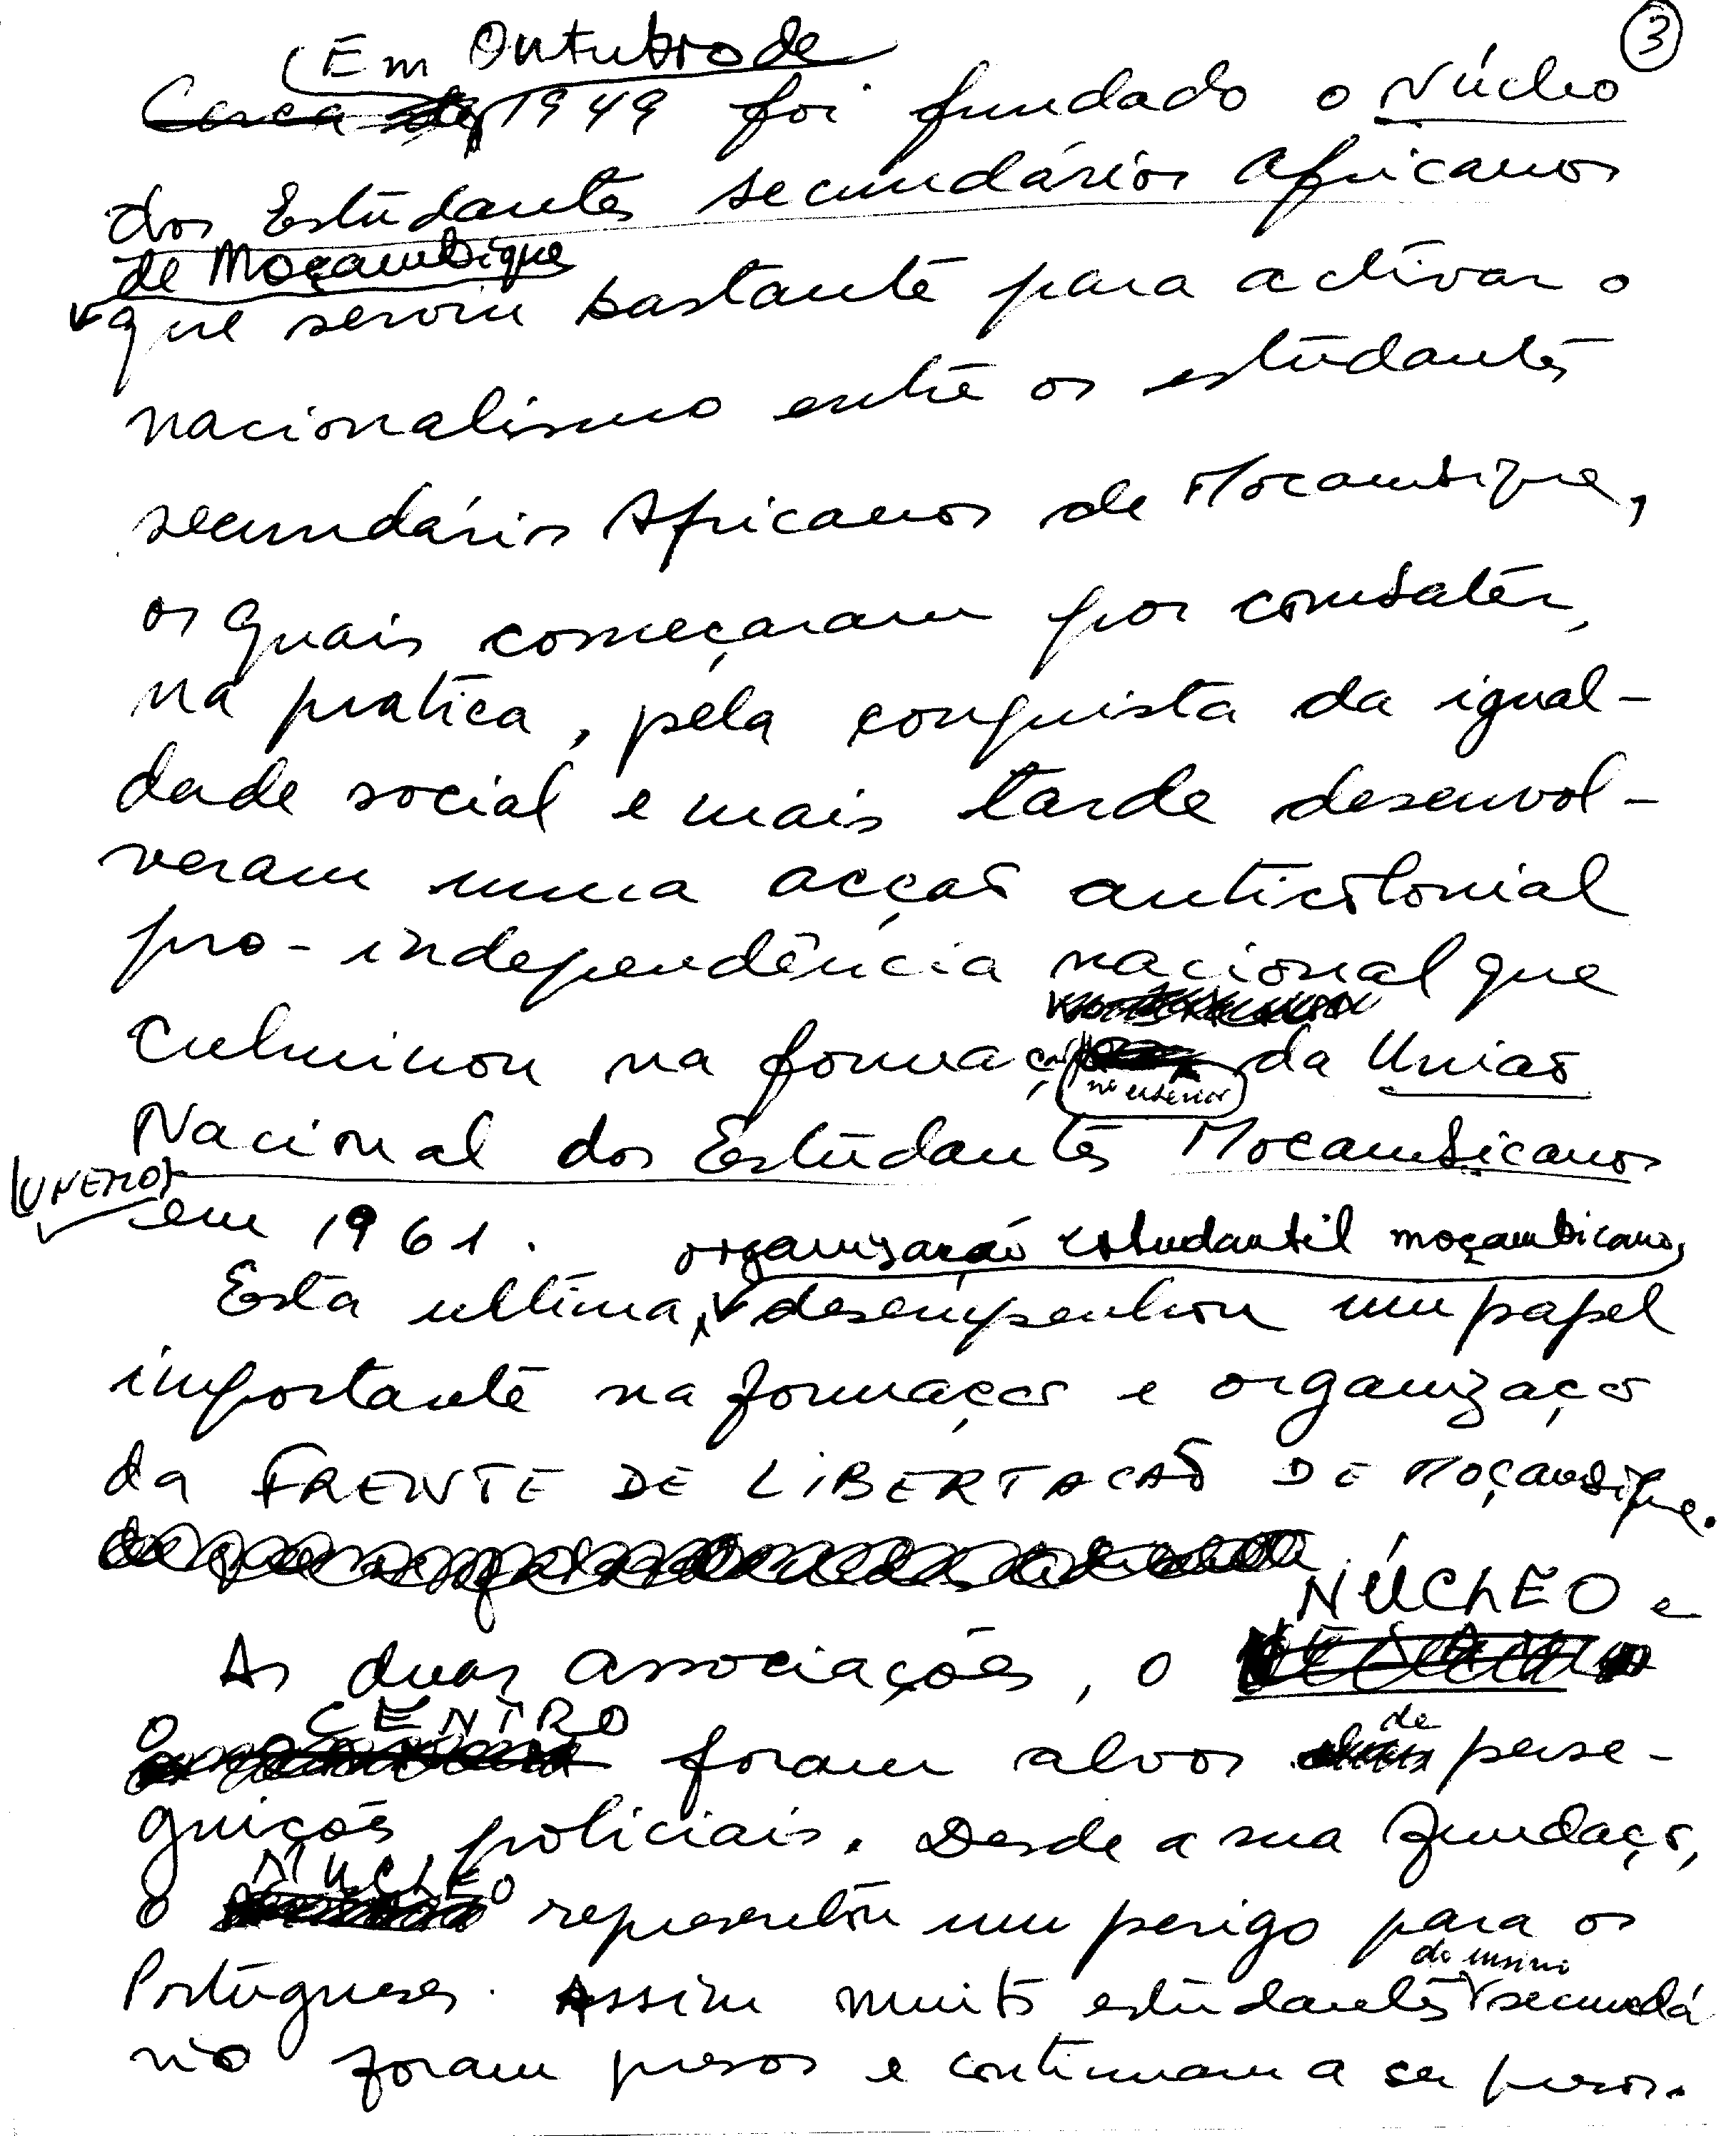 3
Em Outubro de
Cerca de 1949 foi fundado o Núcleo
dos Estudantes secundários africanos
de Moçambique
que serviu bastante para activar o
nacionalismo entre os estudantes
secundários Africanos de Moçambique,
os quais começaram por combater,
na pratica, pela conquista da igual-
dade social e mais tarde desenvol-
veram numa acção anticolonial
pro-independência nacional que
culminou na formação da União
no exterior
Nacional dos Estudantes Moçambicanos
(UNEMO)
em 1961.
organização estudantil moçambicana,
Esta ultima, desempenhou um papel
importante na formação e organização
da FRENTE DE LIBERTAÇÃO DE Moçambique.
NÚCLEO e
As duas associações, o
o CENTRO
foram alvos de perse-
guições policiais. Desde a sua fundação,
NUCLEO
o representou um perigo para os
do ensino
Portugueses. Assim muitos estudantes secundá
rio foram presos e continuam a ser presos.